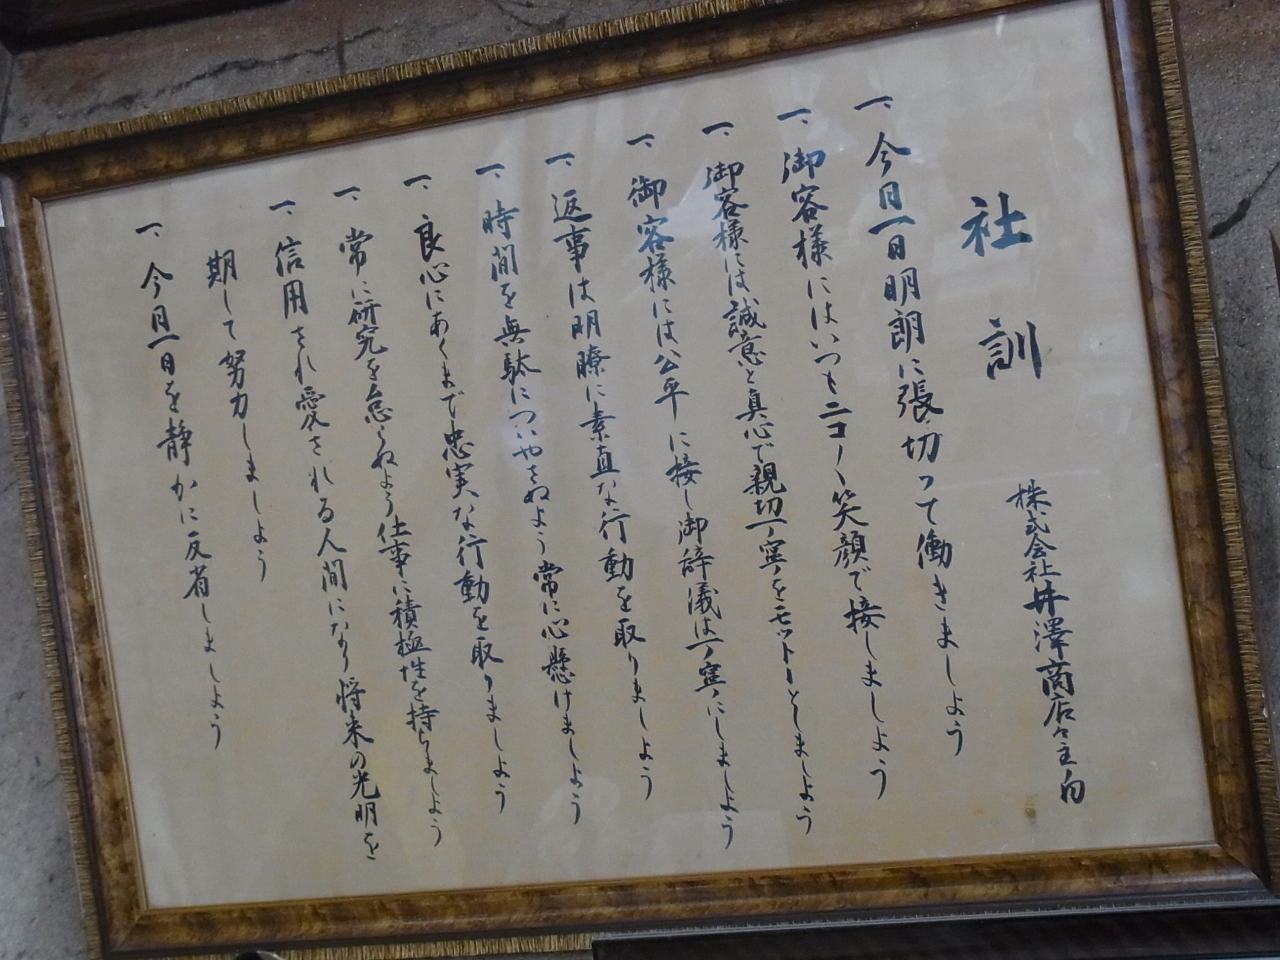 社訓
株式会社井澤商店々主白
一、今日一日明朗に張切って働きましよう
一、御客様にはいつもニコ〳〵笑顔で接しましよう
一、御客様には誠意と真心で親切丁寧をモットーとしましよう
一、御客様には公平に接し御辞儀は丁寧にしましよう
一、返事は明瞭に素直な行動を取りましよう
一、時間を無駄についやさぬよう常に心懸けましよう
一、良心にあくまで忠実な行動を取りましよう
一、常に研究を怠らぬよう仕事に積極性を持ちましよう
一、信用され愛される人間になり将来の光明を
期して努力しましよう
一、今日一日を静かに反省しましよう